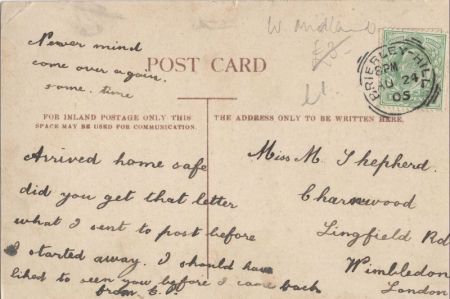 W. Midland
£3
Never mind
come over again.
some. time
POST CARD
BRIERLEY-HILL
8PM
AU 24
05
FOR INLAND POSTAGE ONLY THIS
SPACE MAY BE USED FOR COMMUNICATION.
THE ADDRESS ONLY TO BE WRITTEN HERE.
Arrived home safe
did you get that letter
what I sent to post before
I started away. I should have
liked to seen you before I came back
from
Miss M. Shepherd.
Charnwood
Lingfield Rd
Wimbledon
London